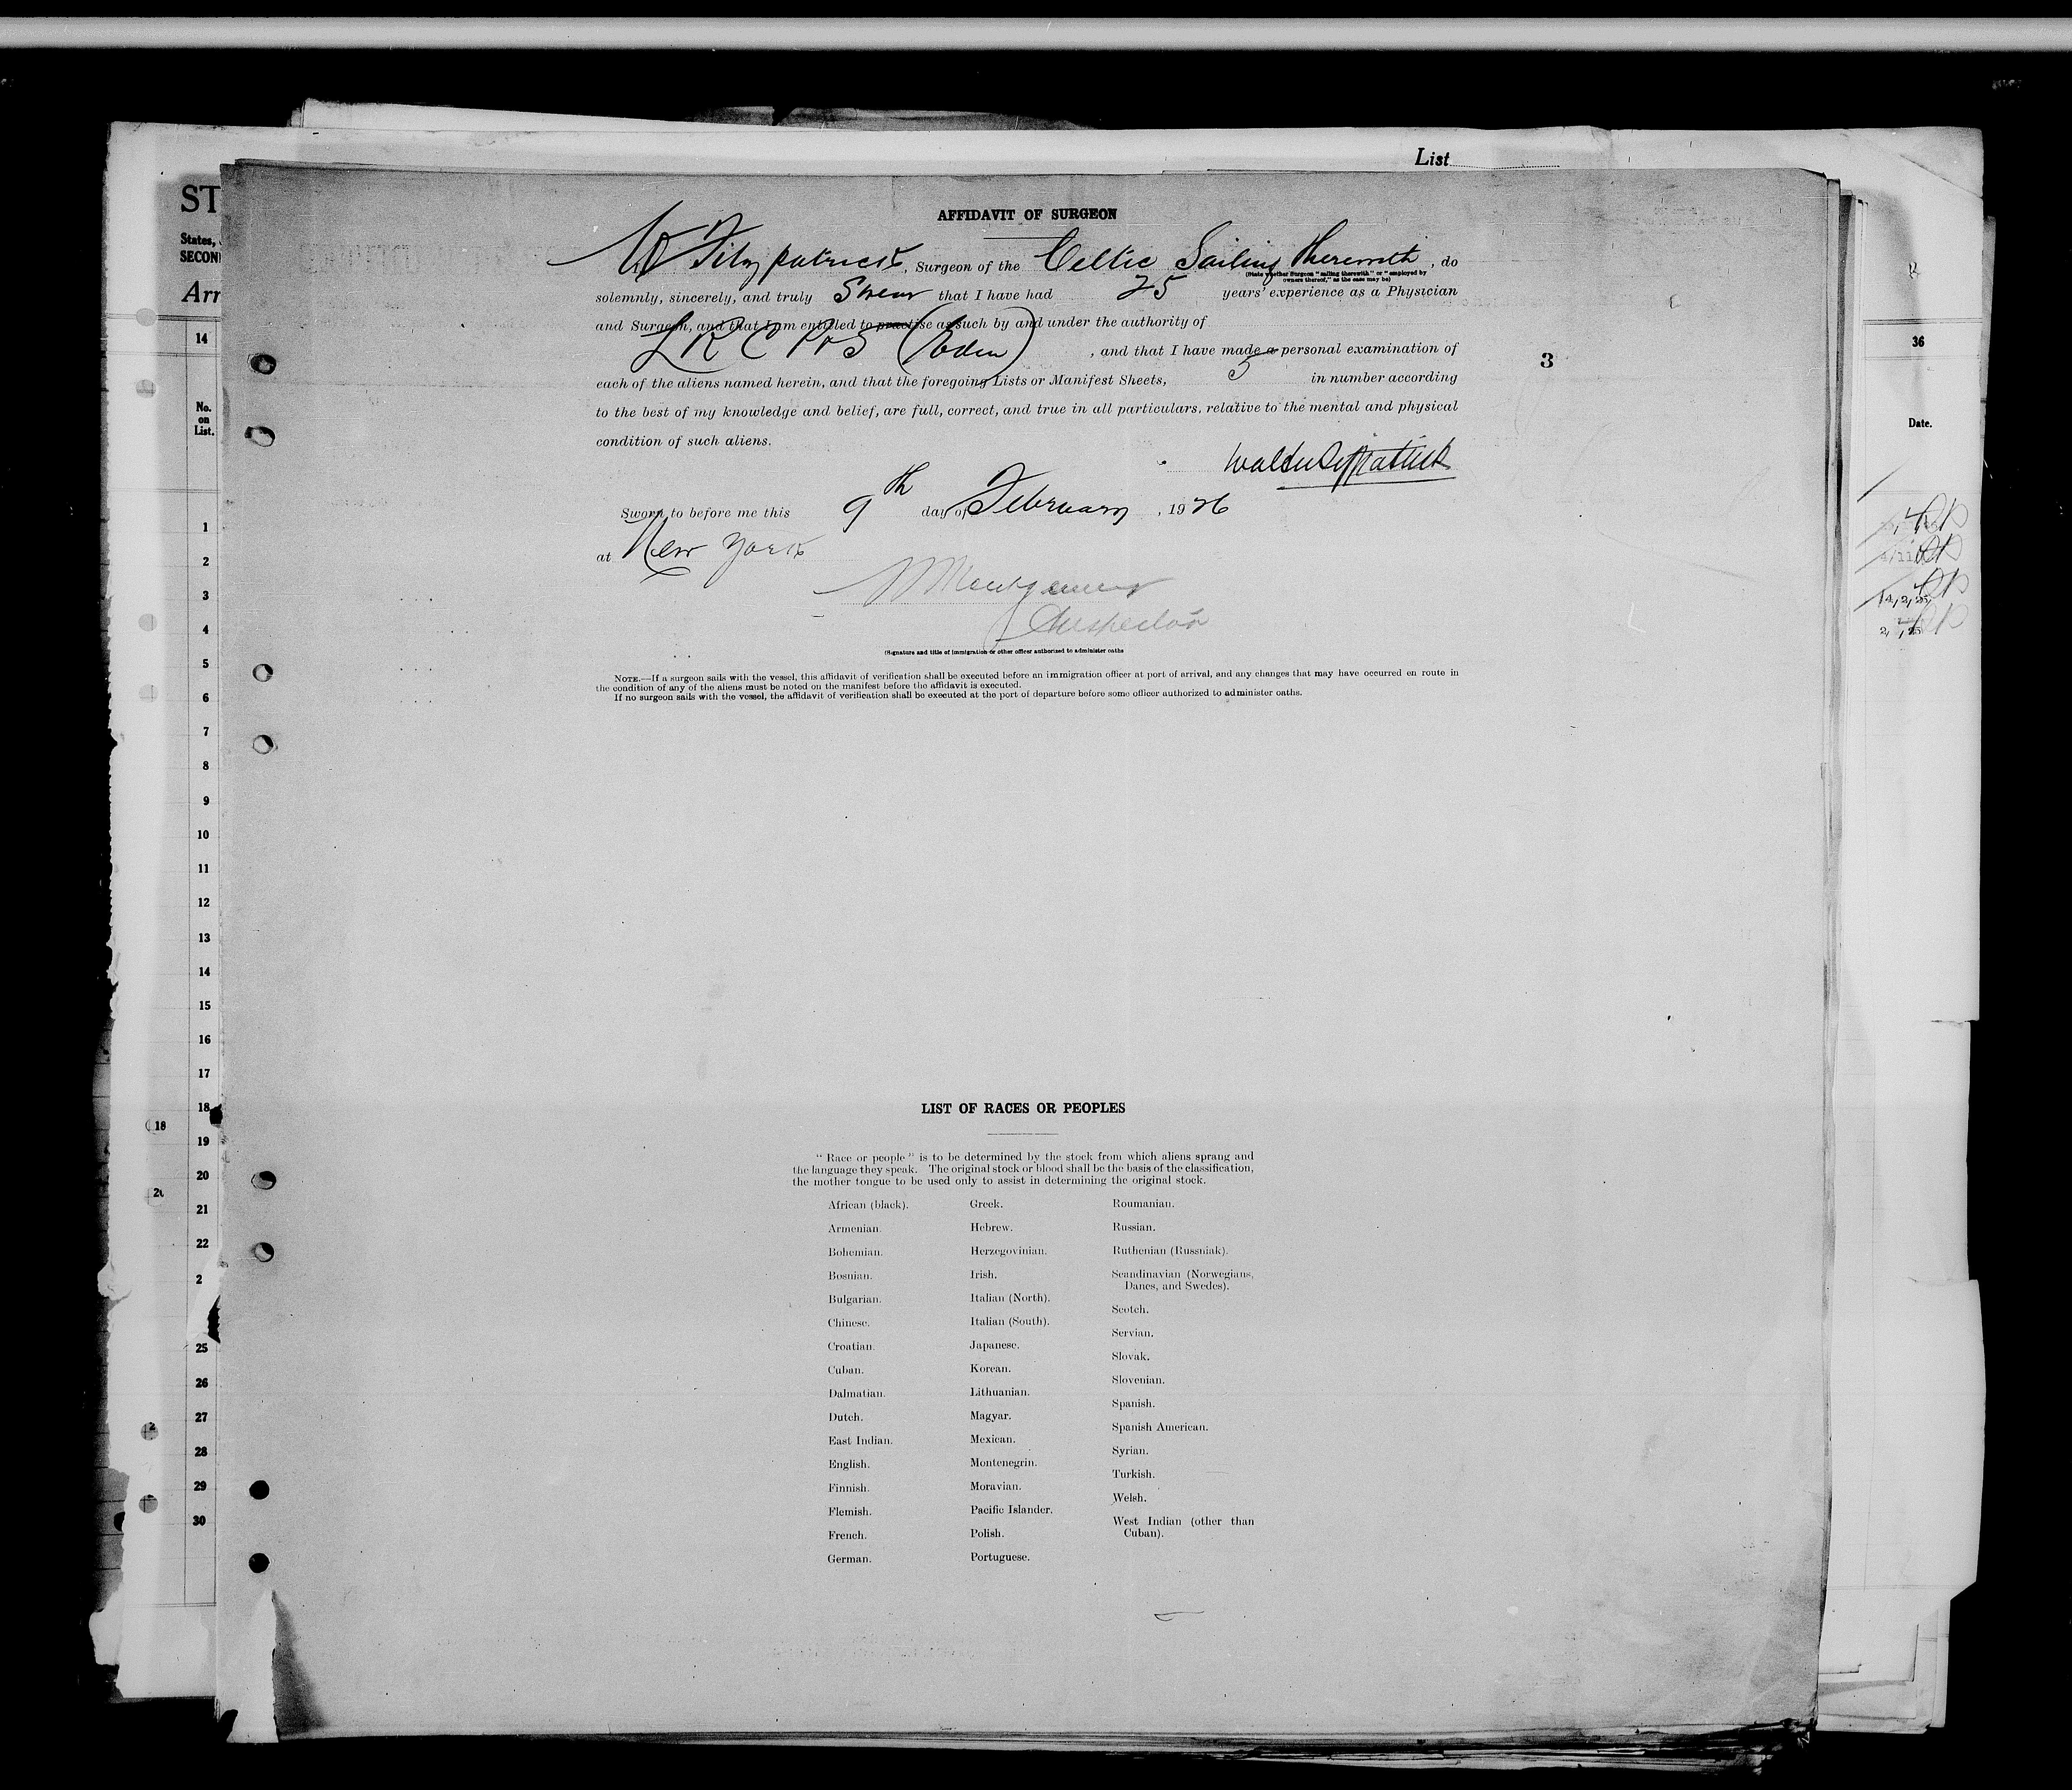 List
ST
States,
SECON
Arr
14
No.
on
List.
1
2
3
4
5
6
7
8
9
10
11
12
13
14
15
16
17
18
19
20
21
22
2
25
26
27
28
29
30
18
2
AFFIDAVIT OF SURGEON
W Fitzpatrick, Surgeon of the Celtic Sailing Therewith, do
(State whether Surgeon "sailing therewith" or "employed by
owners thereof," as the case may be)
solemnly, sincerely, and truly Swear that I have had 25 years' experience as a Physician
and Surgeon, and that I am entitled to practise as such by and under the authority of
L R C P & S (Edin) , and that I have made a personal examination of
each of the aliens named herein, and that the foregoing Lists or Manifest Sheets, 5 in number according
to the best of my knowledge and belief, are full, correct, and true in all particulars, relative to the mental and physical
condition of such aliens.
Walter Fitzpatrick
Sworn to before me this 9th day of February, 1926
at New York
Montgomery
Inspector
(Signature and title of immigration or other officer authorized to administer oaths
NOTE.—If a surgeon sails with the vessel, this affidavit of verification shall be executed before an immigration officer at port of arrival, and any changes that may have occurred en route in
the condition of any of the aliens must be noted on the manifest before the affidavit is executed.
If no surgeon sails with the vessel, the affidavit of verification shall be executed at the port of departure before some officer authorized to administer oaths.
3
36
Date.
LIST OF RACES OR PEOPLES
"Race or people" is to be determined by the stock from which aliens sprang and
the language they speak. The original stock or blood shall be the basis of the classification,
the mother tongue to be used only to assist in determining the original stock.
African (black).
Armenian.
Bohemian.
Bosnian.
Bulgarian.
Chinese.
Croatian.
Cuban.
Dalmatian.
Dutch.
East Indian.
English.
Finnish.
Flemish.
French.
German.
Greek.
Hebrew.
Herzegovinian.
Irish.
Italian (North).
Italian (South).
Japanese.
Korean.
Lithuanian.
Magyar.
Mexican.
Montenegrin.
Moravian.
Pacific Islander.
Polish.
Portuguese.
Roumanian.
Russian.
Ruthenian (Russniak).
Scandinavian (Norwegians,
Danes, and Swedes).
Scotch.
Servian.
Slovak.
Slovenian.
Spanish.
Spanish American.
Syrian.
Turkish.
Welsh.
West Indian (other than
Cuban).